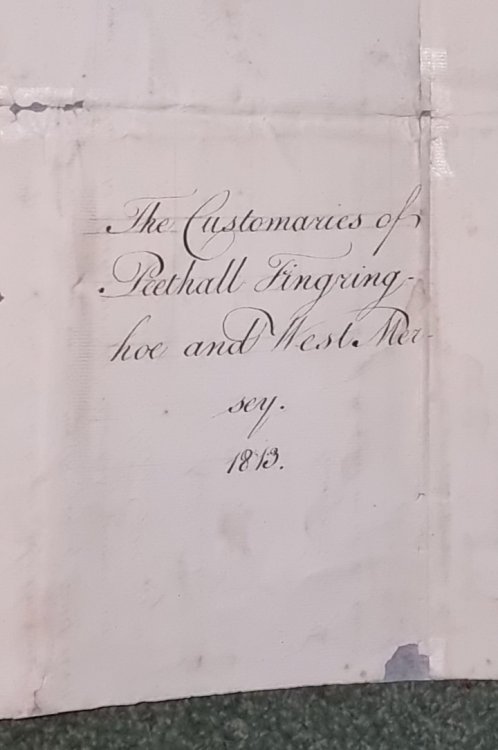 The Customaries of
Peethall Fingring-
hoe and West Mer-
sey.
1813.